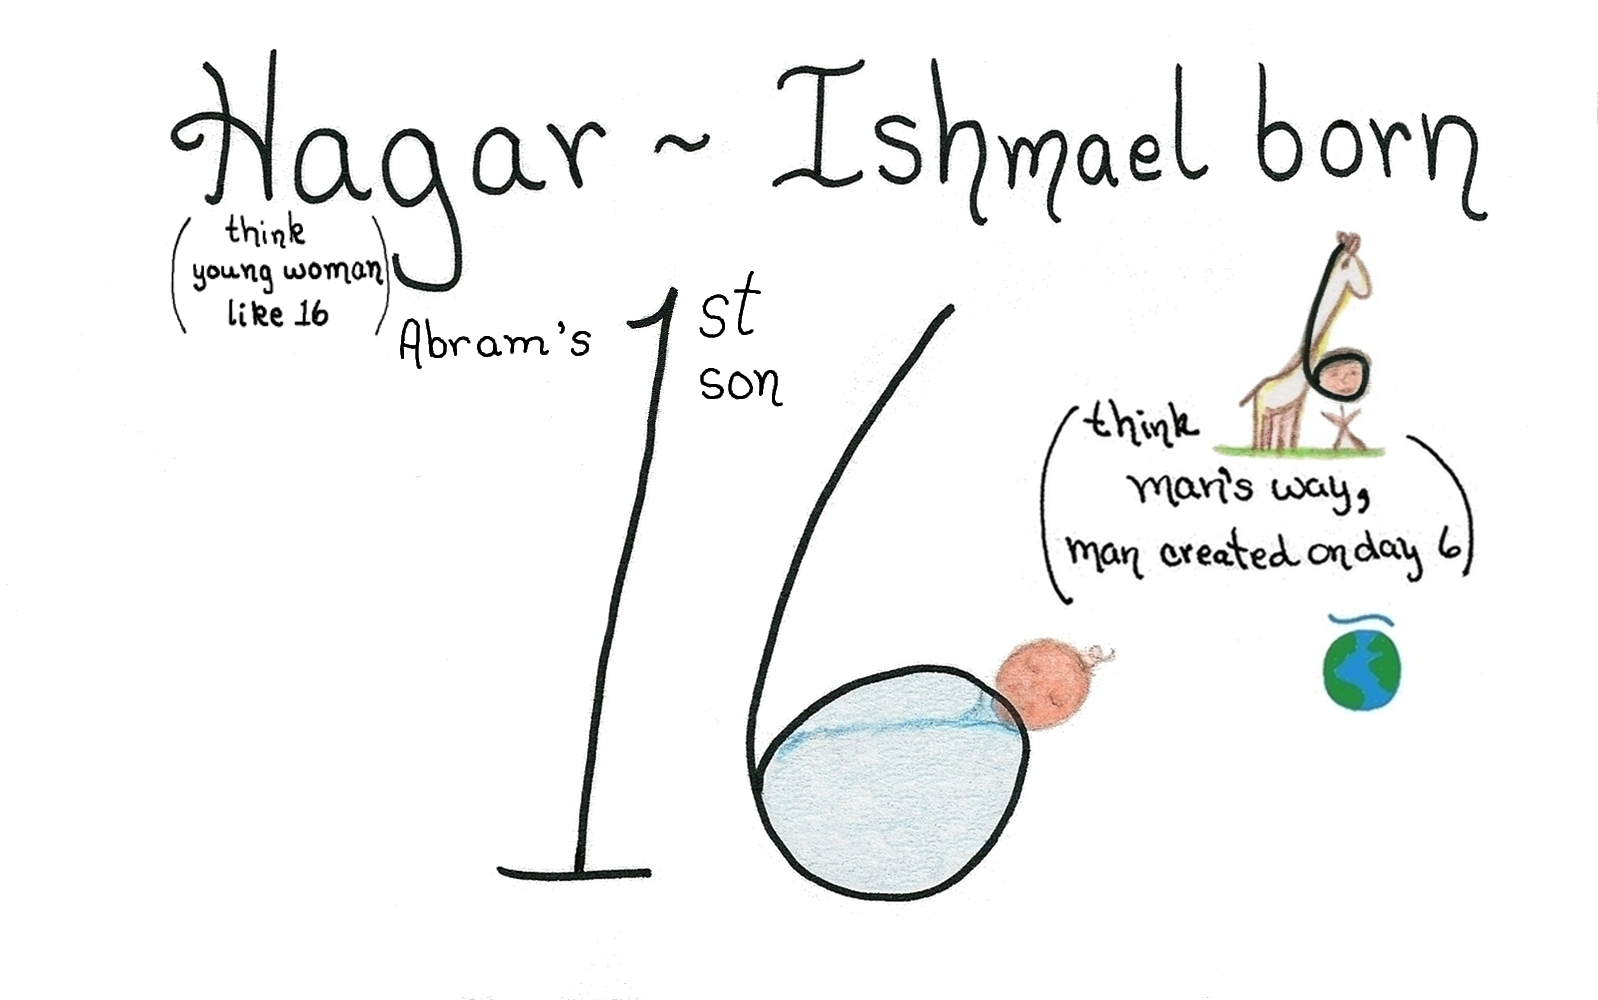 Hagar ~ Ishmael born
(think
young woman
like 16)
Abram's 1st
son
16
6
(think
man's way,
man created on day 6)